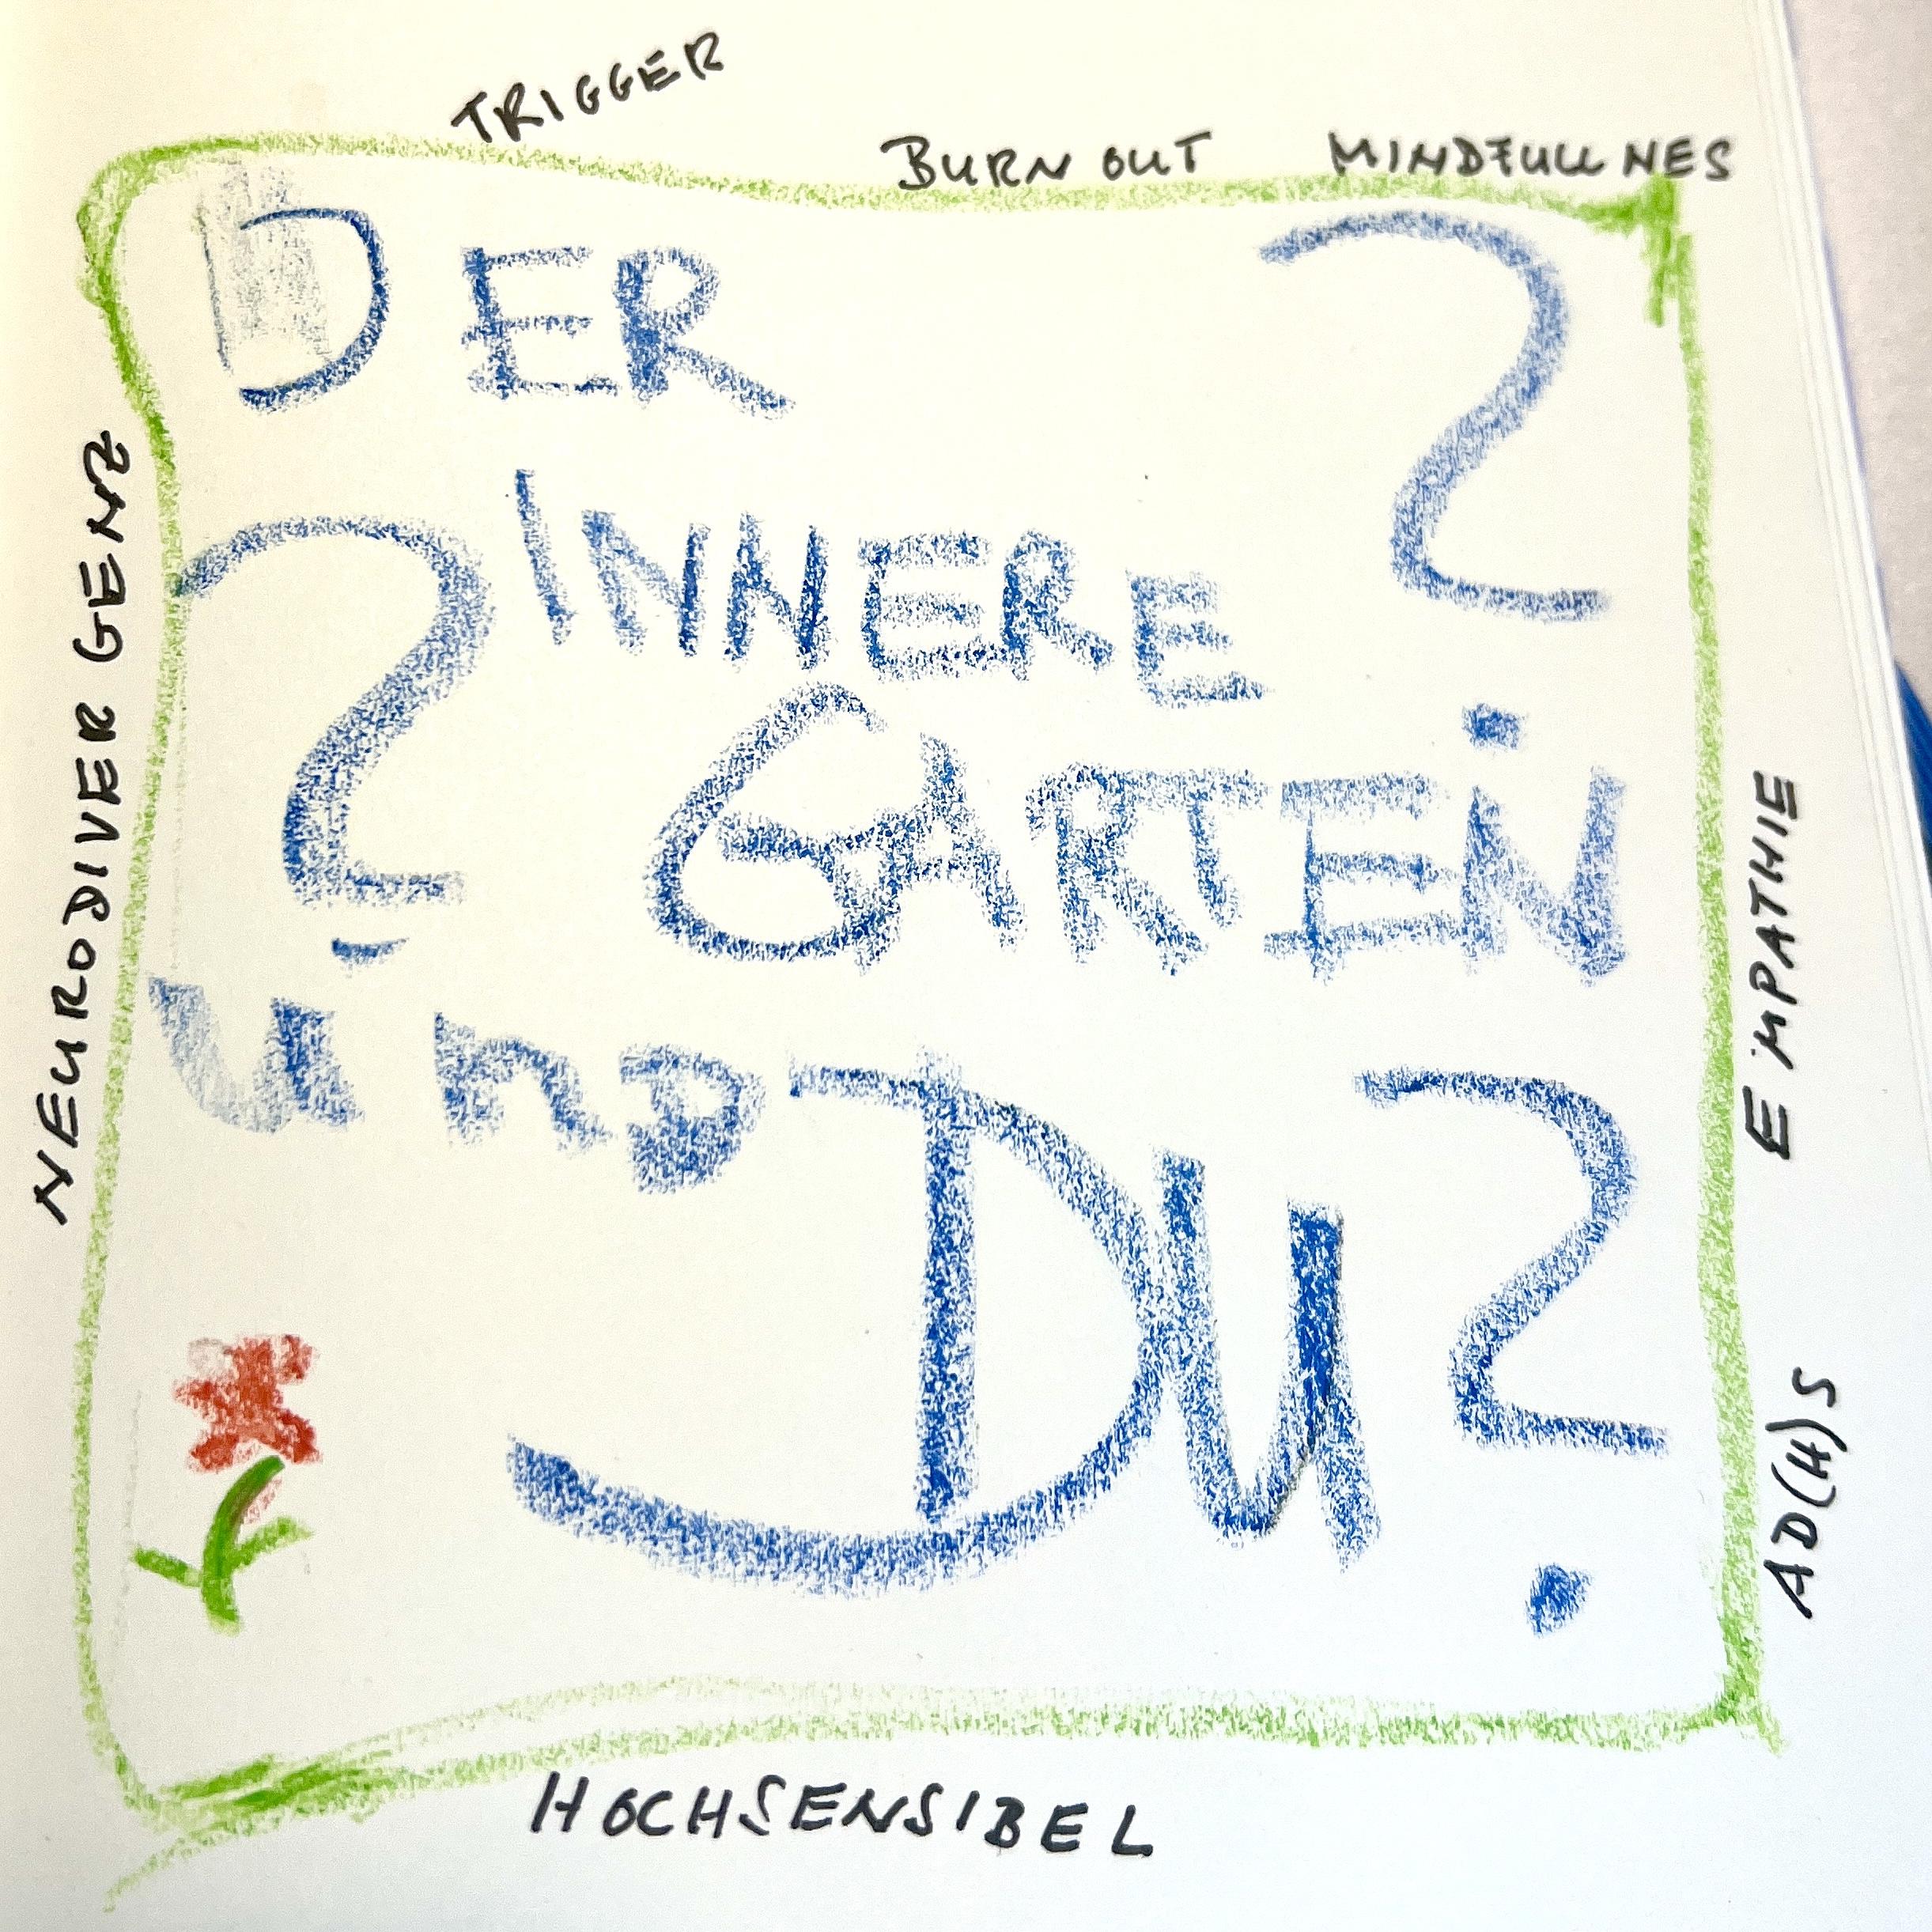 TRIGGER
BURN OUT
MINDFULLNES
DER ?
INNERE
? GARTEN
UnD DU?
NEURODIVER GENZ
EMPATHIE
AD(H)S
HOCHSENSIBEL